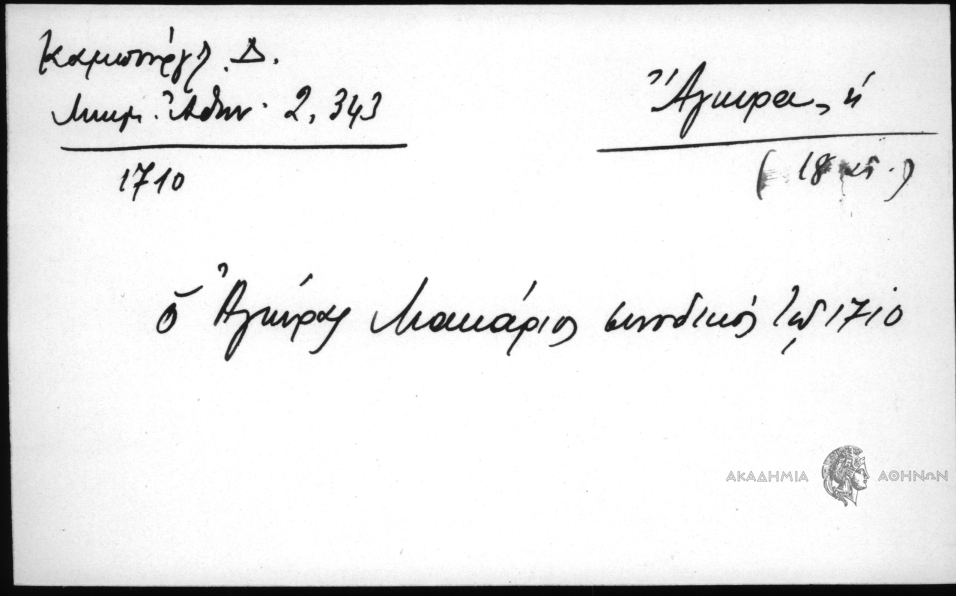 Καμπούρογλ. Δ.
Μνημ. Ἀθην. 2, 343
1710
Ἄγκυρα, ἡ
(18 αἰ.)
ὁ Ἀγκύρας Μακάριος συνοδικός τῷ 1710
ΑΚΑΔΗΜΙΑ ΑΘΗΝΩΝ